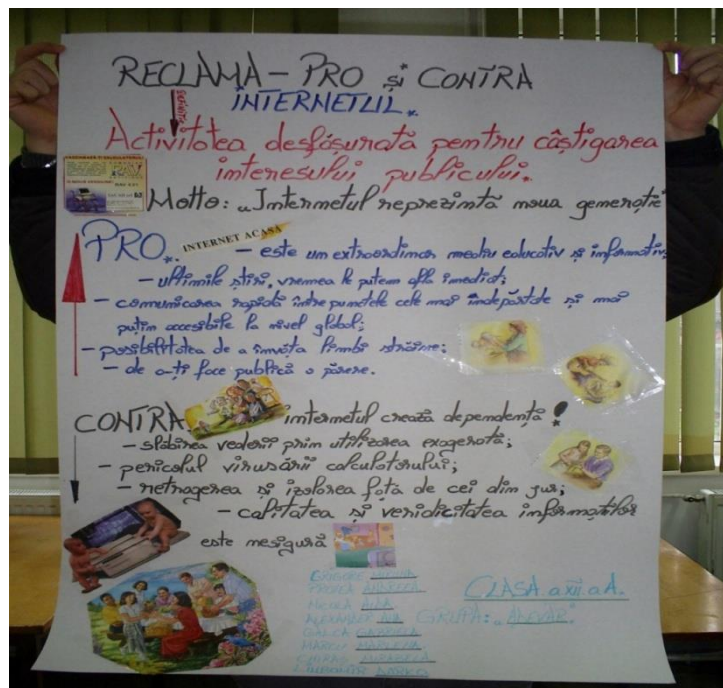 RECLAMA – PRO și CONTRA
INTERNETUL.
Activitatea desfășurată pentru câștigarea
interesului publicului.
Motto: „Internetul reprezintă noua generație”
PRO.
INTERNET ACASĂ
– este un extraordinar mediu educativ și informativ;
– ultimile știri, vremea le putem afla imediat;
– comunicarea rapidă între punctele cele mai îndepărtate și mai
puțin accesibile la nivel global;
– posibilitatea de a învăța limbi străine;
– de a-ți face publică o părere.
CONTRA
internetul crează dependență!
– slăbirea vederii prin utilizarea exagerată;
– pericolul virusării calculatorului;
– retragerea și izolarea față de cei din jur;
– calitatea și veridicitatea informațiilor
este nesigură
GRIGORE
NICOLA ALINA
ALEXANDER ANA
GABRIELA
MIRABELA
CLASA a XII. a A.
GRUPA: „ADEVĂR”